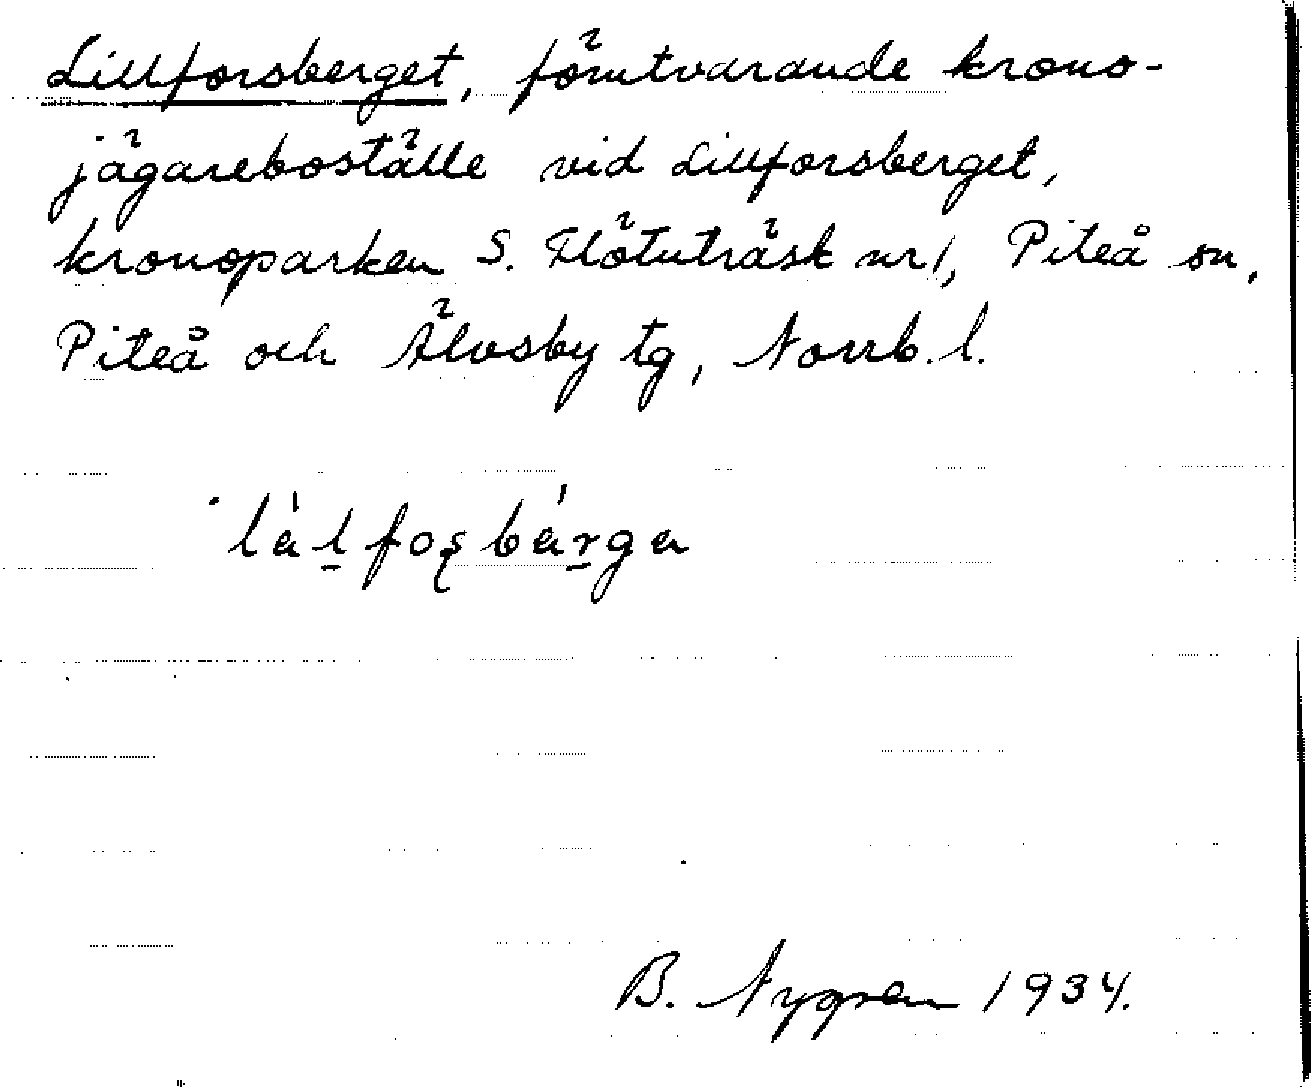 Lillforsberget, förutvarande krono-
jägareboställe vid Lillforsberget,
kronoparken S. Flötuträsk nr 1, Piteå sn,
Piteå och Älvsby tg, Norrb. l.
B. Nygren 1934.